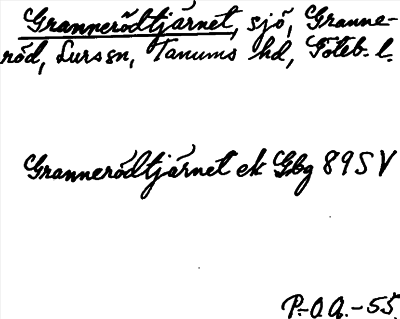 Grannerödtjärnet, sjö, Granne-
röd, Lurssn, Tanums hd, Göteb. l.
Grannerödtjärnet ek Gbg 89SV
P.-O.A.-55.